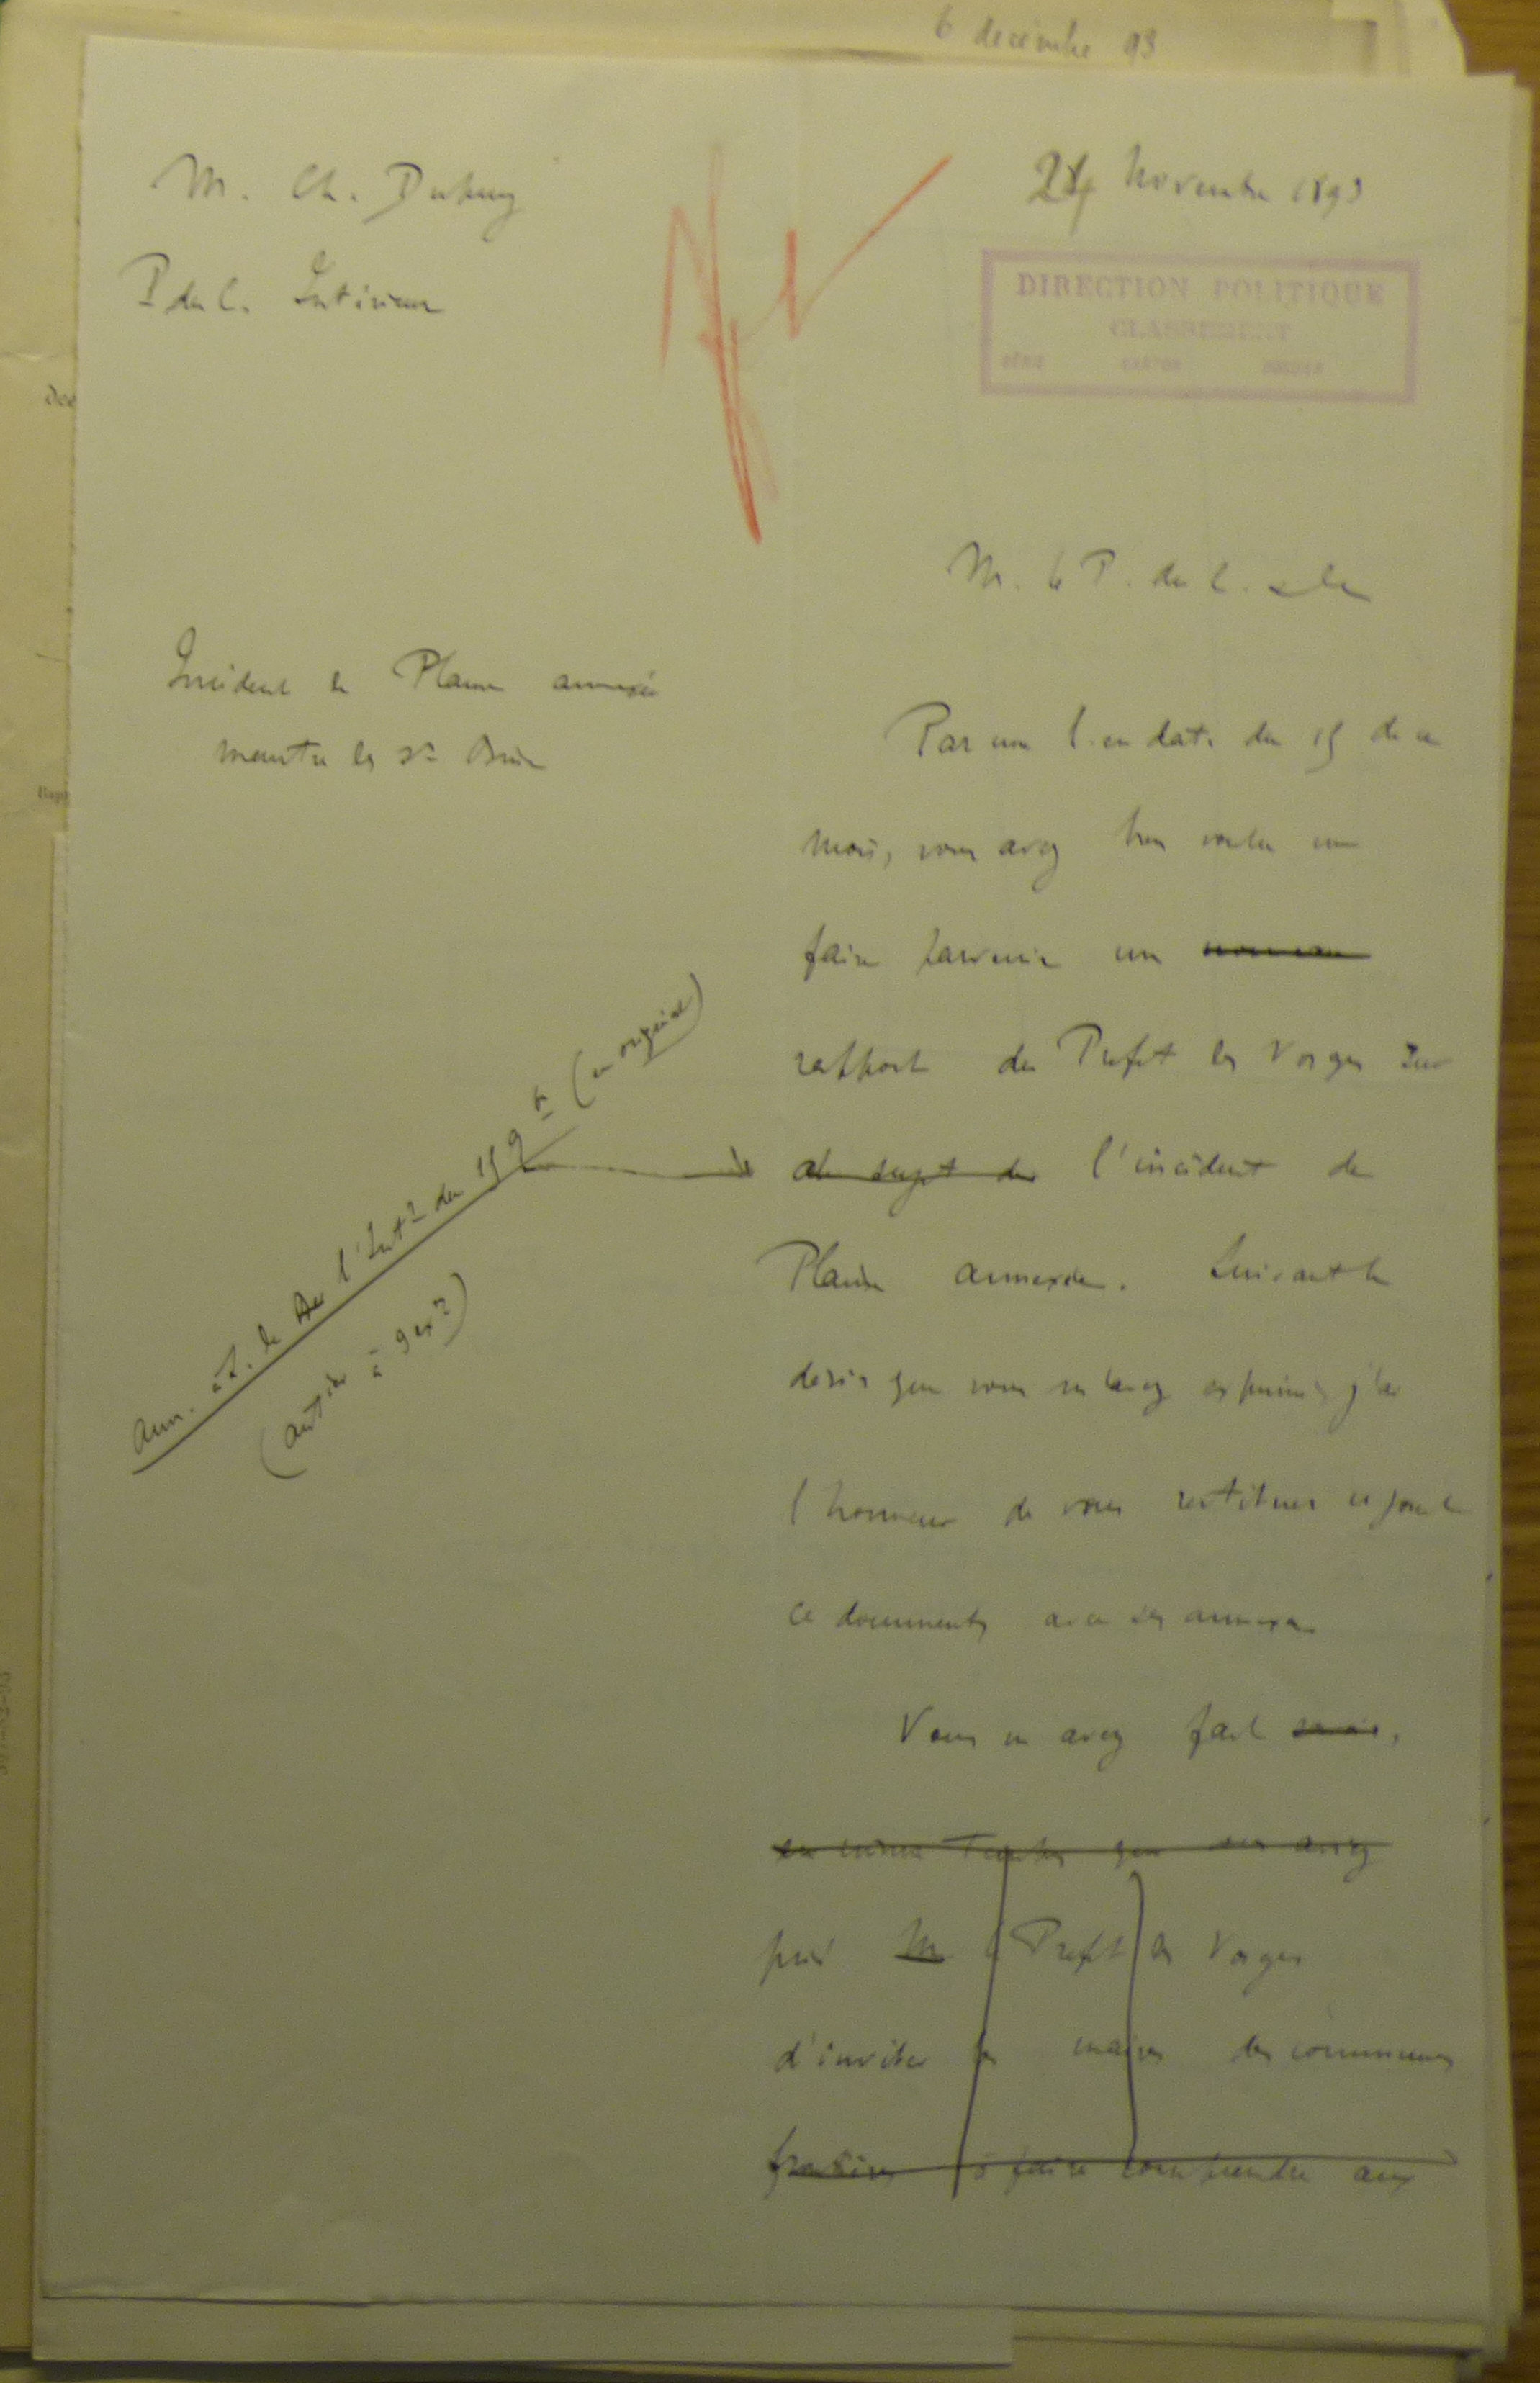 6 decembre 93
M. Ch. Dupuy
P du C. Intérieur
24 Novembre 1893
DIRECTION POLITIQUE
CLASSEMENT
SÉRIE CARTON DOSSIER
M. le P. du C. et
Incident de Plaine annexée
meurtre les
Par une l. en date du 15 de ce
mois, vous avez bien voulu me
faire parvenir un nouveau
rapport du Prefet des Vosges sur
au sujet de l'incident de
Plaine annexée. Suivant le
desir que vous m'avez exprimé, j'ai
l'honneur de vous restituer ci joint
ce documents avec ses annexes.
Ann. à l. de l'Int.r du 15 9bre (en original)
Vous m'avez fait savoir,
en même temps que vous aviez
prié M le Prefet des Vosges
d'inviter les maires des communes
à faire comprendre aux